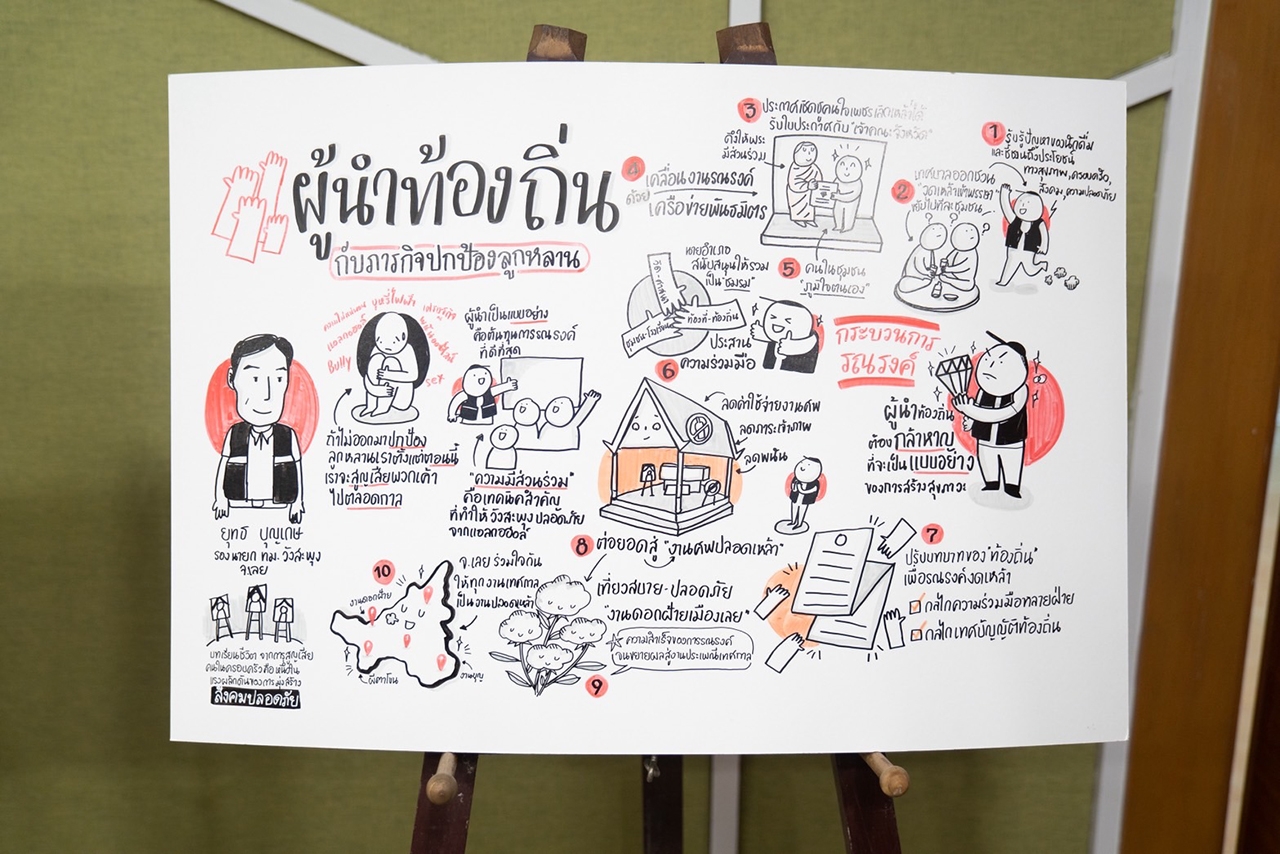 ผู้นำท้องถิ่น
กับภารกิจปกป้องลูกหลาน
ยุทธ บุญเกษ
รองนายก ทม. วังสะพุง
จ.เลย
บทเรียนชีวิต จากการสูญเสีย
คนในครอบครัว คือ หนึ่งใน
แรงผลักดันของการมุ่งสร้าง
สังคมปลอดภัย
บุหรี่ไฟฟ้า
แอลกอฮอล์
Bully
sex
ถ้าไม่ออกมาปกป้อง
ลูกหลานเราตั้งแต่ตอนนี้
เราจะสูญเสียพวกเค้า
ไปตลอดกาล
ผู้นำเป็นแบบอย่าง
คือต้นทุนการรณรงค์
ที่ดีที่สุด
"ความมีส่วนร่วม"
คือเทคนิคสำคัญ
ที่ทำให้ วังสะพุง ปลอดภัย
จากแอลกอฮอล์
กระบวนการ
รณรงค์
ผู้นำท้องถิ่น
ต้อง กล้าหาญ
ที่จะเป็น แบบอย่าง
ของการสร้างสุขภาวะ
1 รับรู้ปัญหาของนักดื่ม
และชี้ชวนถึงประโยชน์
ทางสุขภาพ, ครอบครัว,
สังคม, ความปลอดภัย
2 เทศบาลออกชวน
"งดเหล้าเข้าพรรษา"
3 ประกาศเชิดชูคนใจเพชร
รับใบประกาศกับ "เจ้าคณะจังหวัด"
ดึงให้พระ
มีส่วนร่วม
4 เคลื่อนงานรณรงค์
ด้วย เครือข่ายพันธมิตร
5 คนในชุมชน
"ภูมิใจตนเอง"
นายอำเภอ
สนับสนุนให้รวม
เป็น "ชมรม"
วัด-ศาสนา
ท้องที่-ท้องถิ่น
ชุมชน-โรงเรียน
ประสาน
ความร่วมมือ
6
ลดค่าใช้จ่ายงานศพ
ลดภาระเจ้าภาพ
ลดพนัน
7 ปรับบทบาทของ "ท้องถิ่น"
เพื่อรณรงค์งดเหล้า
กลไกความร่วมมือหลายฝ่าย
กลไกเทศบัญญัติท้องถิ่น
8 ต่อยอดสู่ "งานศพปลอดเหล้า"
เที่ยวสบาย-ปลอดภัย
"งานดอกฝ้ายเมืองเลย"
ความสำเร็จของการรณรงค์
จนขยายผลสู่งานประเพณีเทศกาล
9
10
จ.เลย ร่วมใจกัน
ให้ทุกงานเทศกาล
เป็นงานปลอดเหล้า
งานดอกฝ้าย
ผีตาโขน
งานบุญ